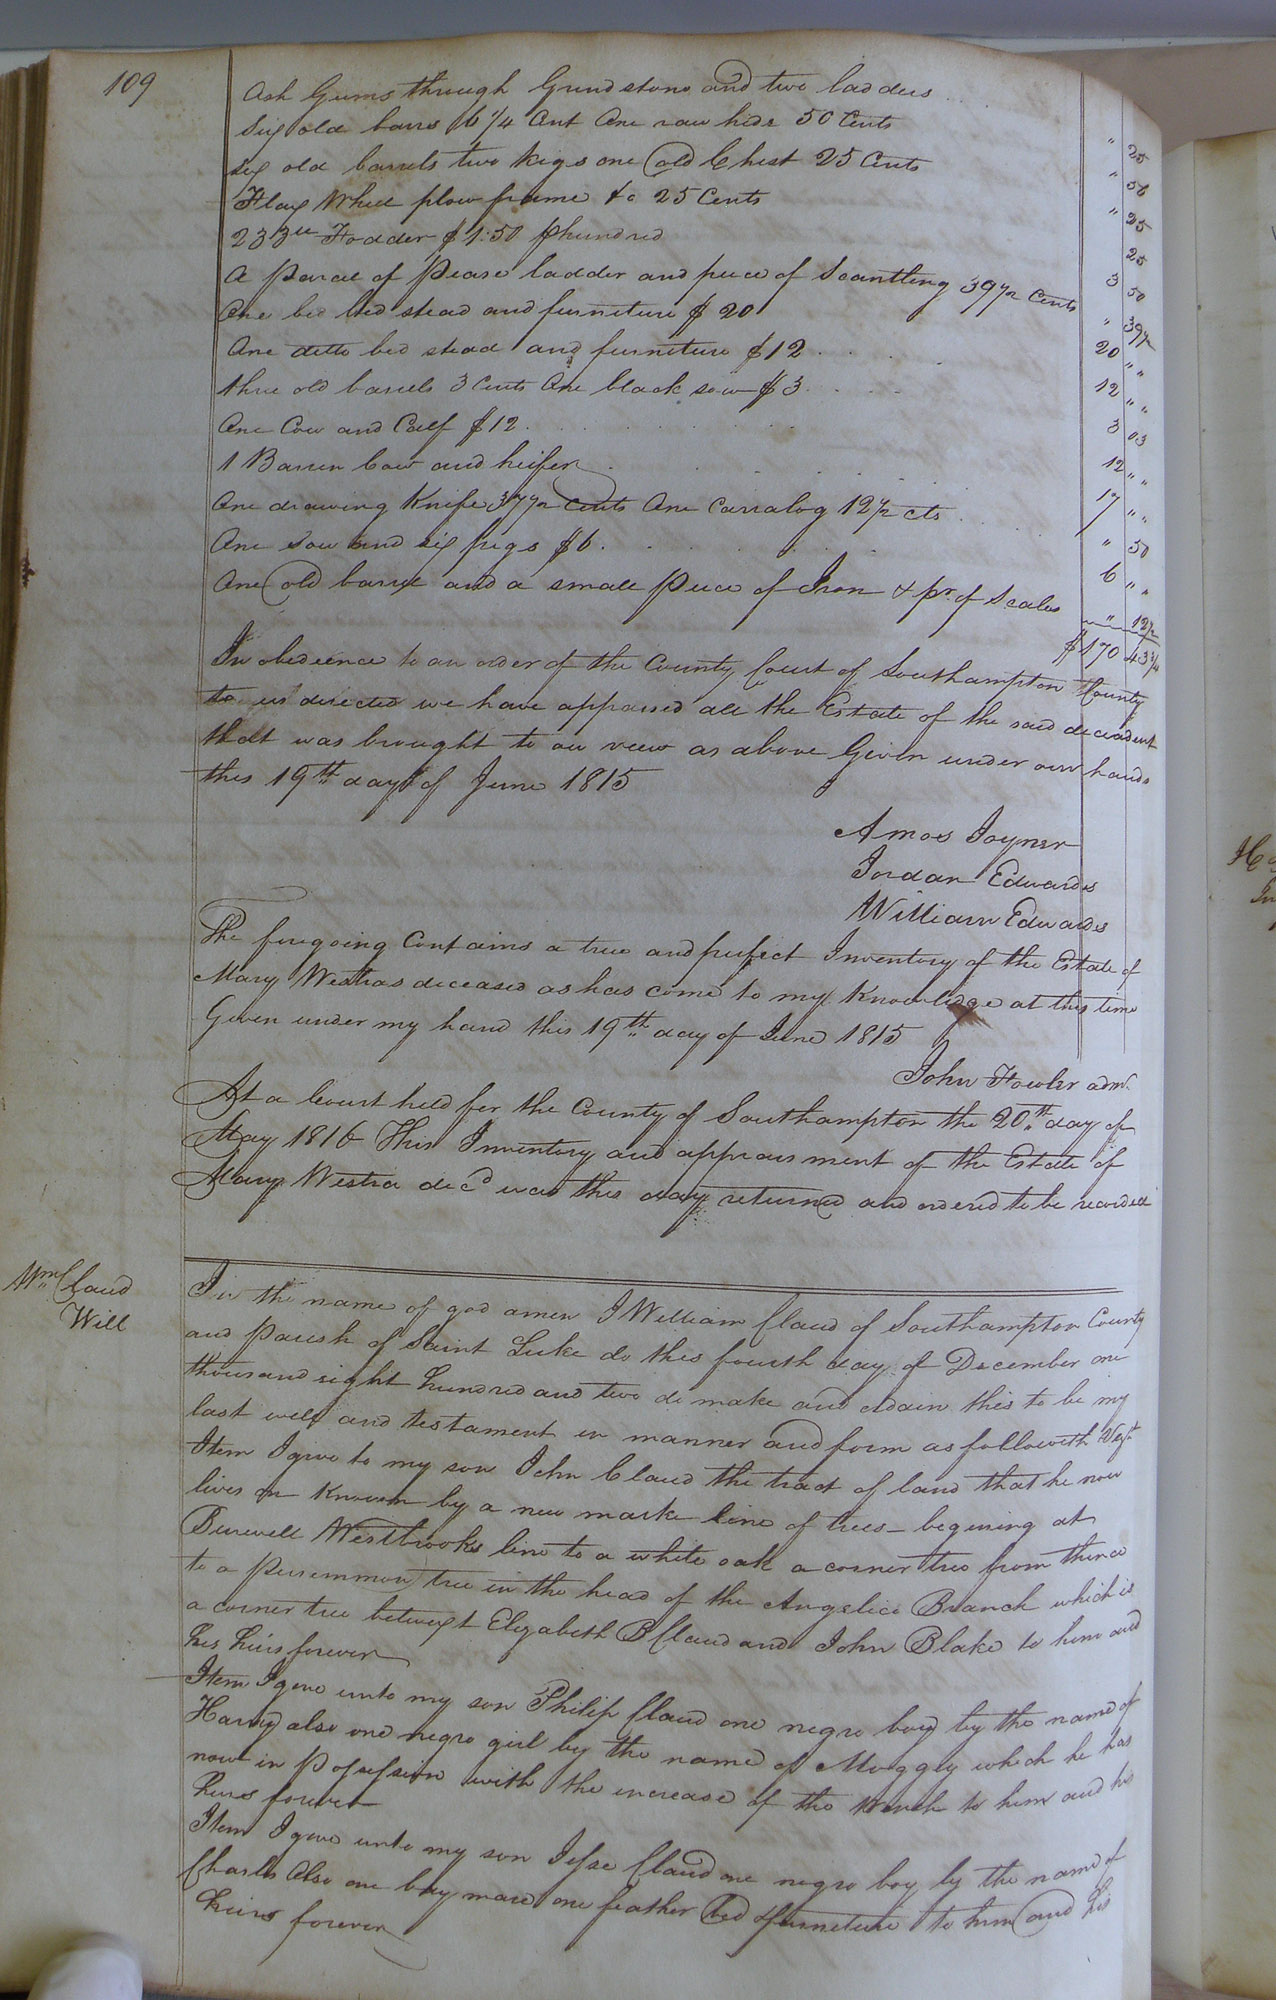 109
Ash Gums through Grindstone and two ladders
Six old barrs 6 1/4 Cnt One raw hide 50 Cents " 25
six old barrels two kegs one old Chest 25 Cents " 56
Flax Wheel plow frame &c 25 Cents " 25
233 lb Fodder $1.50 p hundred 25
A Parcel of Pease ladder and piece of Scantling 39 1/2 Cents 3 50
One bed bed stead and furniture $20 " 39 1/2
One ditto bed stead and furniture $12 20 " "
three old barrels 3 Cents One black sow $3 12 " "
One Cow and Calf $12 3 03
1 Barren Cow and heifer 12 " "
One drawing Knife 37 1/2 Cents One Carralog 12 1/2 cts 17 " "
One Sow and six pigs $6 " 50
One old barrel and a small Piece of Iron & pr. of Scales 6 " "
" 12 1/2
$170 43 3/4
In obedience to an order of the County Court of Southampton County
to us directed we have appraised all the Estate of the said decedent
that was brought to our view as above Given under our hands
this 19th day of June 1815
Amos Joyner
Jordan Edwards
William Edwards
The foregoing Contains a true and perfect Inventory of the Estate of
Mary Westras deceased as has come to my Knowledge at this time
Given under my hand this 19th day of June 1815
John Fowler adm.
At a Court held for the County of Southampton the 20th day of
May 1816 This Inventory and appraisment of the Estate of
Mary Westra decd was this day returned and ordered to be recorded
Wm Claud
Will
In the name of god amen I William Claud of Southampton County
and Parish of Saint Luke do this fourth day of December one
thousand eight hundred and two do make and ordain this to be my
last will and testament in manner and form as followith Vizt
Item I give to my son John Claud the tract of land that he now
lives on Known by a new marke line of trees begining at
Burwell Westbrooks line to a white oak a corner tree from thence
to a persemmon tree in the head of the Angelico Branch which is
a corner tree betwixt Elizabeth B Claud and John Blake to him and
his heirs forever
Item I give unto my son Philip Claud one negro boy by the name of
Harry also one negro girl by the name of Muggly which he has
now in Possession with the increase of the Wench to him and his
heirs forever
Item I give unto my son Jesse Claud one negro boy by the name of
Charles Also one bay mare one feather bed & furneture to him and his
heirs forever